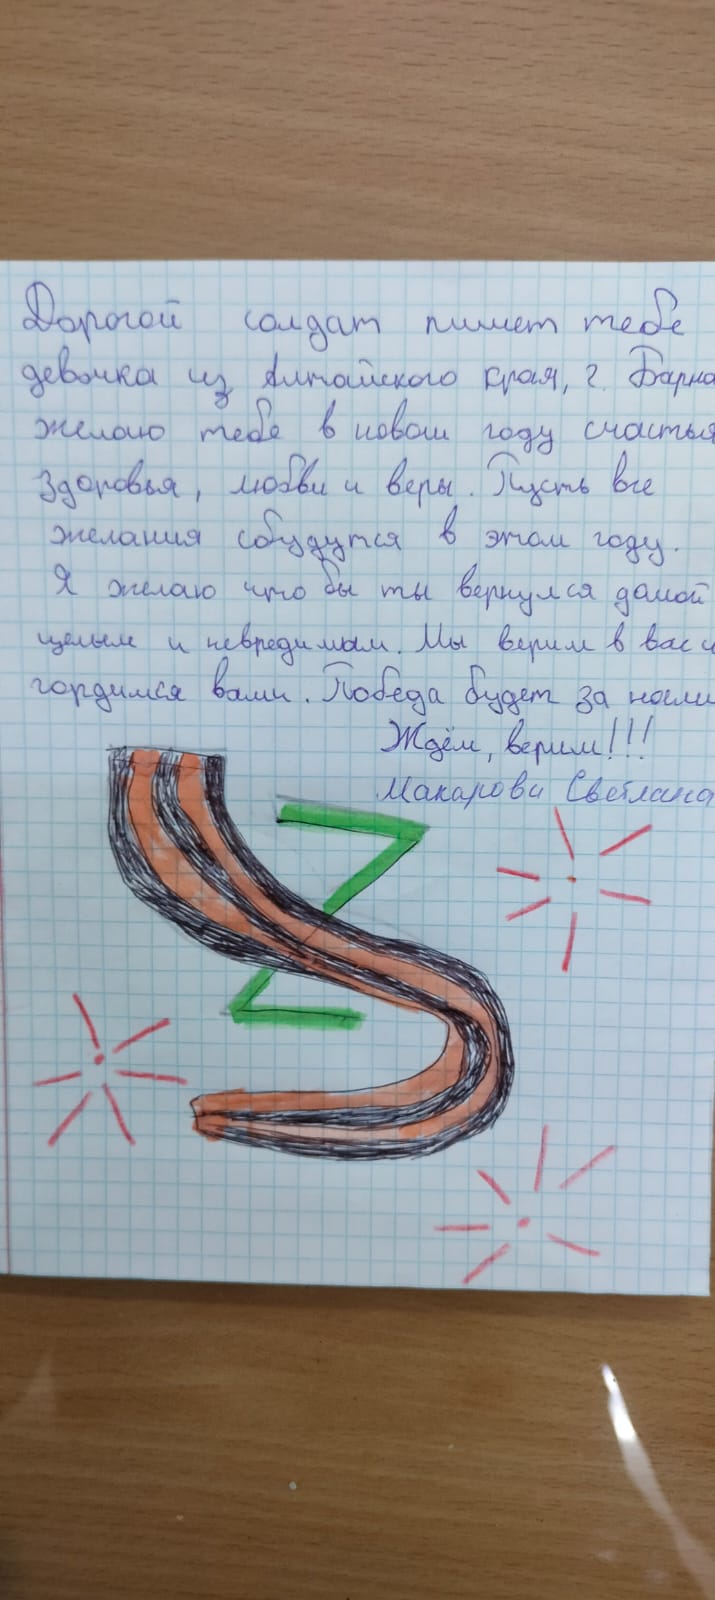 Дорогой солдат пишет тебе
девочка из Алтайского края, г. Барна
желаю тебе в новом году счастья
здоровья, любви и веры. Пусть все
желания сбудутся в этом году.
Я желаю что бы ты вернулся домой
целым и невредимым. Мы верим в вас и
гордимся вами. Победа будет за нами
Ждём, верим!!!
Макарова Светлана
Z